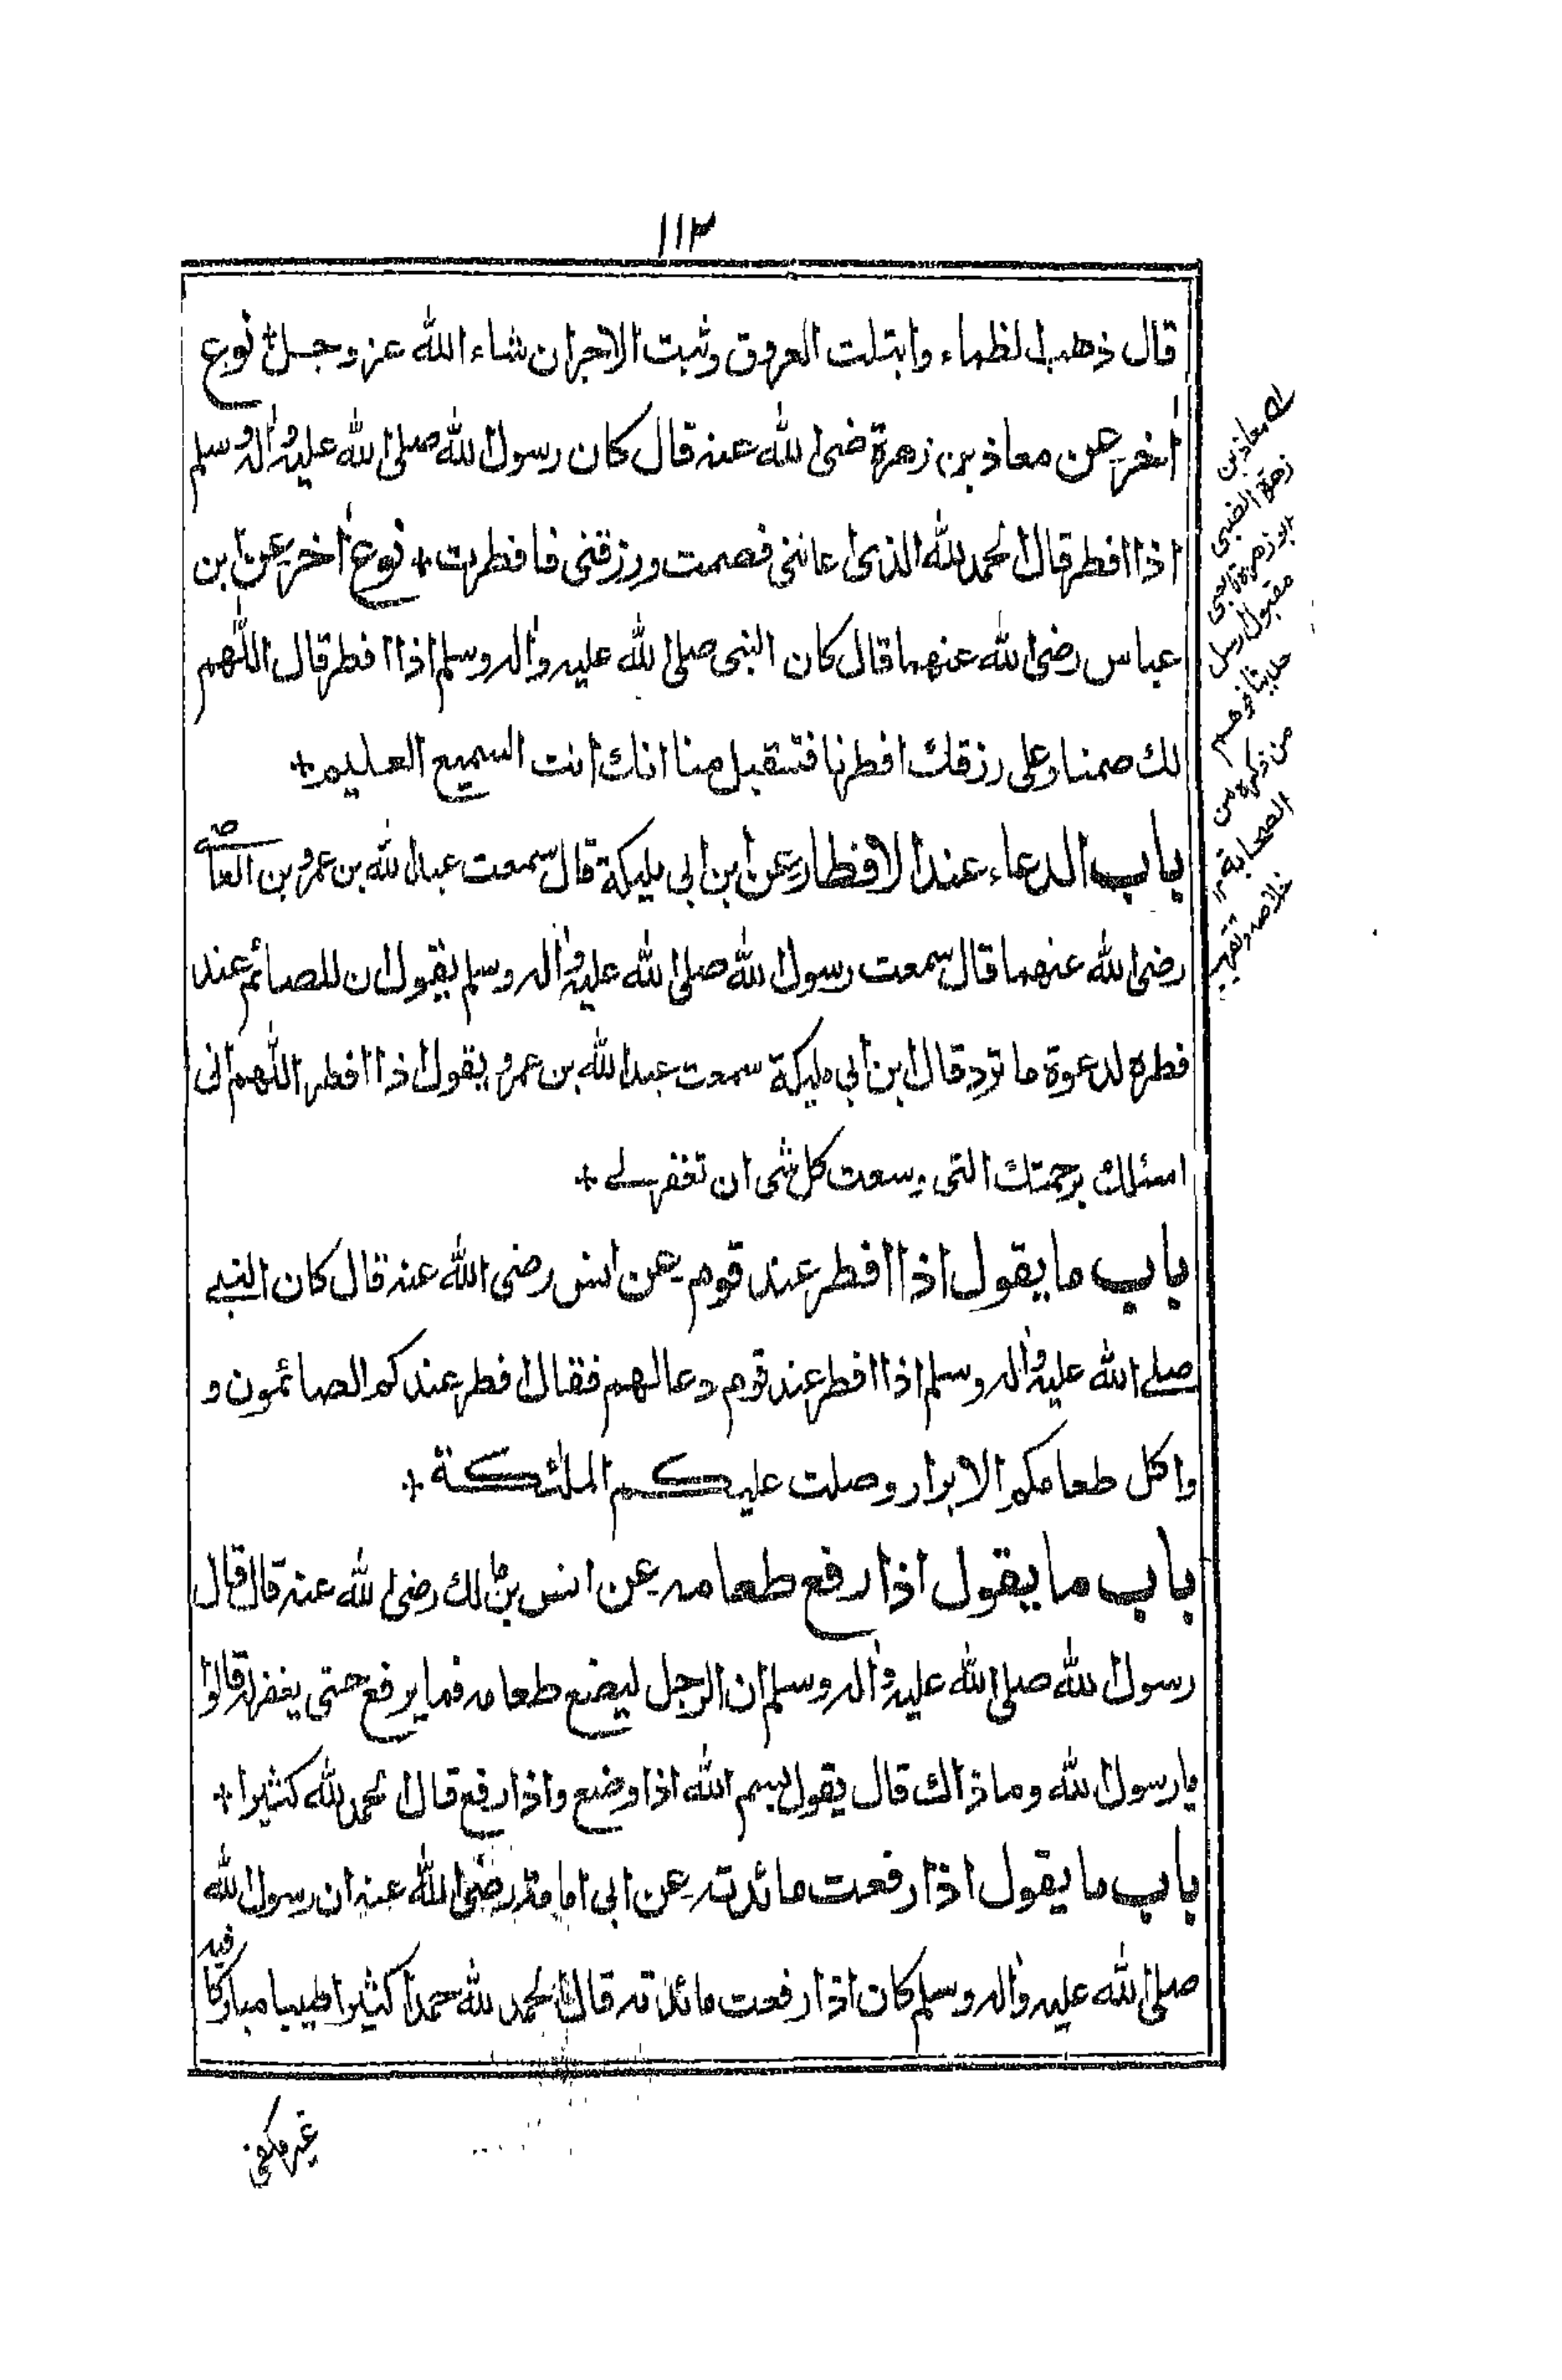 ١١٣
قال ذهب الظماء وابتلت العروق وثبت الاجران شاء الله عز وجل + نوع
اٰخر عن معاذ بن زهرة رضى الله عنه قال كان رسول الله صلى الله عليه واٰله وسلم
اذا افطر قال الحمد لله الذى اعاننى فصمت ورزقنى فافطرت + نوع اٰخر عن ابن
عباس رضى الله عنهما قال كان النبى صلى الله عليه واٰله وسلم اذا افطر قال اللّٰهم
لك صمنا وعلى رزقك افطرنا فتقبل منا انك انت السميع العليم +
باب الدعاء عند الافطار عن ابن ابى مليكة قال سمعت عبد الله بن عمرو بن العاص
رضى الله عنهما قال سمعت رسول الله صلى الله عليه واٰله وسلم يقول ان للصائم عند
فطره لدعوة ما ترد قال ابن ابى مليكة سمعت عبد الله بن عمرو يقول اذا افطر اللّٰهم انى
اسئلك برحمتك التى وسعت كل شى ان تغفر لے +
باب ما يقول اذا افطر عند قوم عن انس رضى الله عنه قال كان النبے
صلے الله عليه واٰله وسلم اذا افطر عند قوم دعا لهم فقال افطر عندكم الصائمون و
واكل طعامكم الابرار وصلت عليكم الملئكة +
باب ما يقول اذا رفع طعامه عن انس بن مالك رضى الله عنه قال قال
رسول الله صلى الله عليه واٰله وسلم ان الرجل ليضع طعامه فما يرفع حتى يغفر له قالوا
يا رسول الله وما ذاك قال يقول بسم الله اذا وضع واذا رفع قال الحمد لله كثيرا +
باب ما يقول اذا رفعت مائدته عن ابى امامة رضى الله عنه ان رسول الله
صلى الله عليه واٰله وسلم كان اذا رفعت مائدته قال الحمد لله حمدا كثيرا طيبا مباركا فيه
غير مكفى
له معاذ بن
زهرة الضبى
ابو زهرة تابعى
مقبول ارسل
حديثا فوهم
من ذكره من
الصحابة ١٢
خلاصه وتقريب